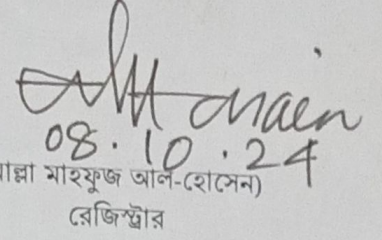 08.10.24
মাহফুজ আল-হোসেন)
রেজিস্ট্রার